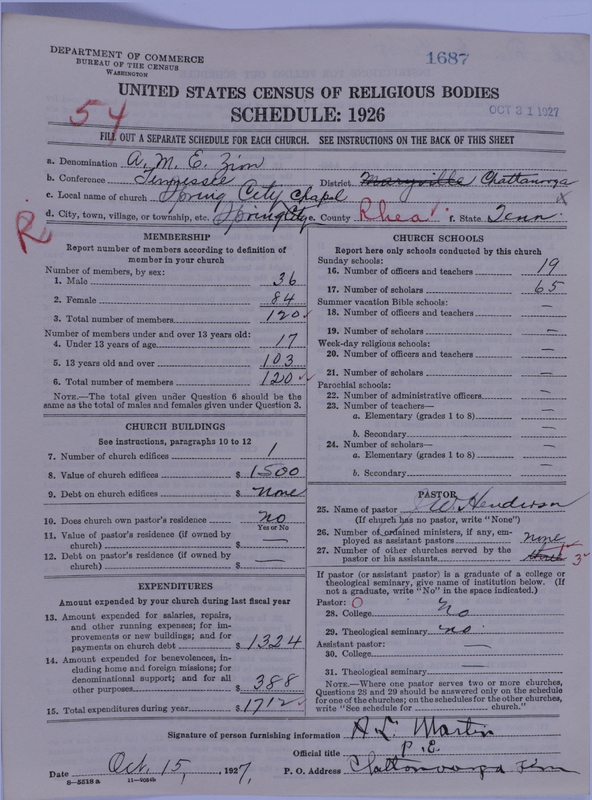 DEPARTMENT OF COMMERCE
BUREAU OF THE CENSUS
WASHINGTON
1687
UNITED STATES CENSUS OF RELIGIOUS BODIES
SCHEDULE: 1926
OCT 31 1927
54
FILL OUT A SEPARATE SCHEDULE FOR EACH CHURCH. SEE INSTRUCTIONS ON THE BACK OF THIS SHEET
a. Denomination A. M. E. Zion
b. Conference Tennessee District Maryville Chattanooga
c. Local name of church Spring City Chapel
d. City, town, village, or township, etc. Spring City e. County Rhea f. State Tenn.
R
MEMBERSHIP
Report number of members according to definition of
member in your church
Number of members, by sex:
1. Male 36
2. Female 84
3. Total number of members 120
Number of members under and over 13 years old:
4. Under 13 years of age 17
5. 13 years old and over 103
6. Total number of members 120
NOTE.—The total given under Question 6 should be
same as the total of males and females given under Question 3.
CHURCH BUILDINGS
See instructions, paragraphs 10 to 12
7. Number of church edifices 1
8. Value of church edifices $ 1500
9. Debt on church edifices $ None
10. Does church own pastor's residence No
Yes or No
11. Value of pastor's residence (if owned by
church) $ —
12. Debt on pastor's residence (if owned by
church) $ —
EXPENDITURES
Amount expended by your church during last fiscal year
13. Amount expended for salaries, repairs,
and other running expenses; for im-
provements or new buildings; and for
payments on church debt $ 1324
14. Amount expended for benevolences, in-
cluding home and foreign missions; for
denominational support; and for all
other purposes $ 388
15. Total expenditures during year $ 1712
CHURCH SCHOOLS
Report here only schools conducted by this church
Sunday schools:
16. Number of officers and teachers 19
17. Number of scholars 65
Summer vacation Bible schools:
18. Number of officers and teachers —
19. Number of scholars —
Week-day religious schools:
20. Number of officers and teachers —
21. Number of scholars —
Parochial schools:
22. Number of administrative officers —
23. Number of teachers—
a. Elementary (grades 1 to 8) —
b. Secondary —
24. Number of scholars—
a. Elementary (grades 1 to 8) —
b. Secondary —
PASTOR
25. Name of pastor W. Henderson
(If church has no pastor, write "None")
26. Number of ordained ministers, if any, em-
ployed as assistant pastors none
27. Number of other churches served by the
pastor or his assistants 3
If pastor (or assistant pastor) is a graduate of a college or
theological seminary, give name of institution below. (If
not a graduate, write "No" in the space indicated.)
Pastor: O
28. College No
29. Theological seminary no
Assistant pastor: —
30. College
31. Theological seminary —
NOTE.—Where one pastor serves two or more churches,
Questions 28 and 29 should be answered only on the schedule
for one of the churches; on the schedules for the other churches,
write "See schedule for church."
Signature of person furnishing information A L Martin
Official title P. E.
Date Oct. 15, 1927, P. O. Address Chattanooga Tenn
8—5518 a